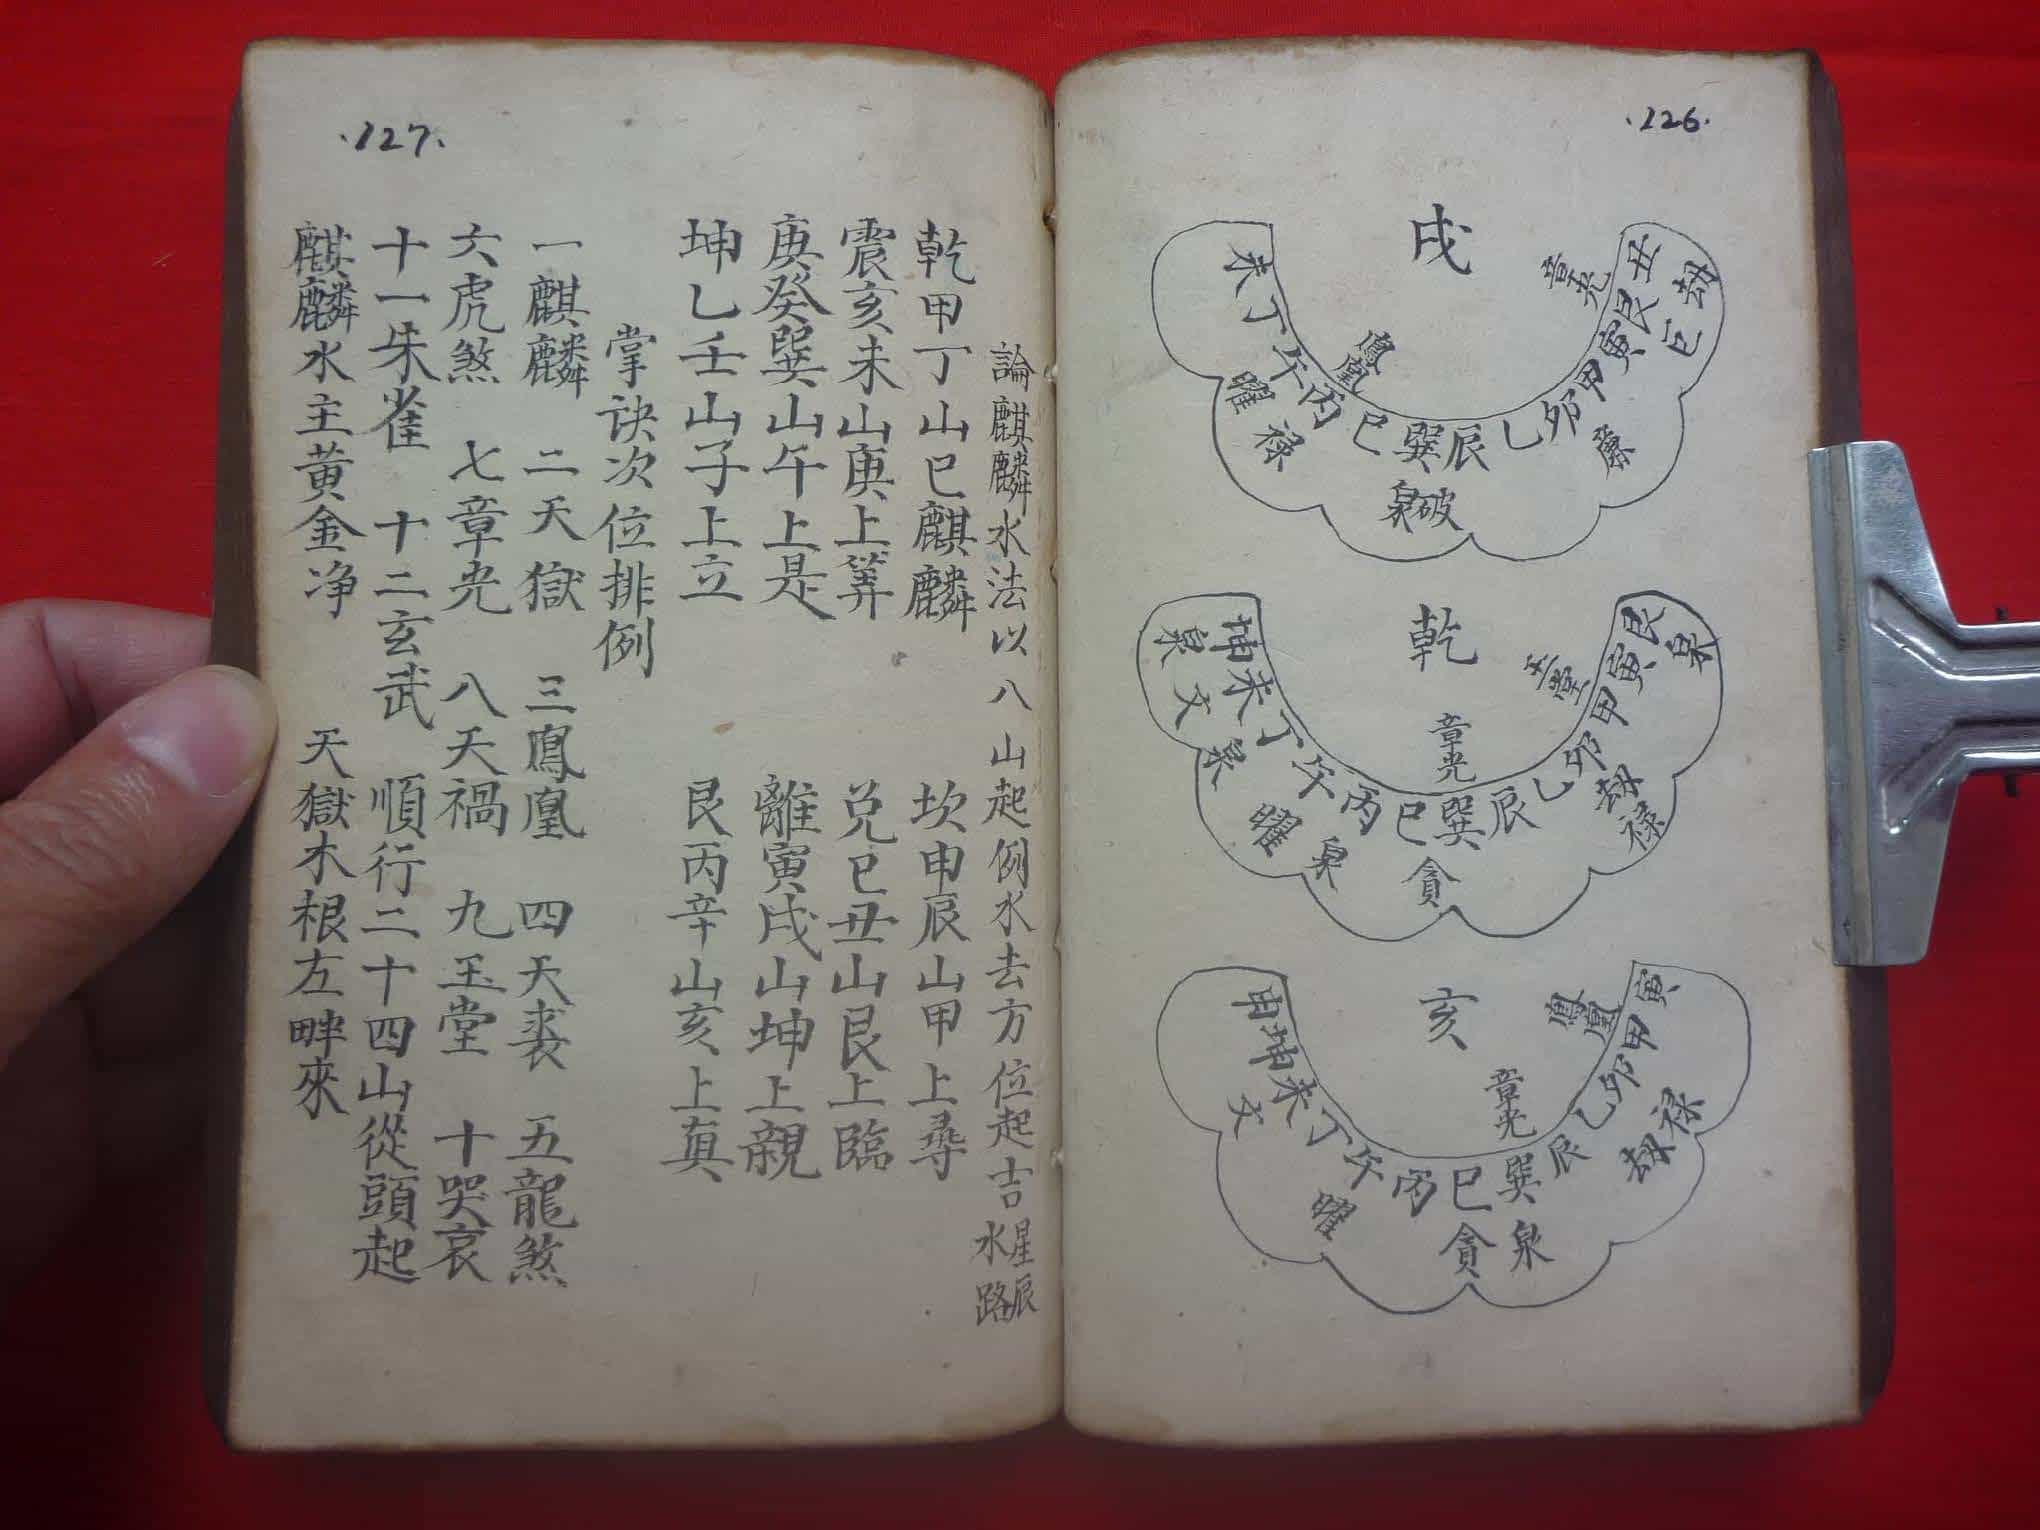 .126.
戌
丑艮寅甲卯乙辰巽巳丙午丁未
章光
鳳凰
劫
廉
破
泉
禄
曜
乾
艮寅甲卯乙辰巽巳丙午丁未坤
玉堂
章光
泉
劫
禄
貪
泉
曜
泉
文
泉
亥
寅甲卯乙辰巽巳丙午丁未坤申
鳳凰
章光
禄
劫
泉
貪
曜
文
.127.
論麒麟水法以八山起例水去方位起吉星辰水路
乾甲丁山巳麒麟 坎申辰山甲上尋
震亥未山庚上筭 兌巳丑山艮上臨
庚癸巽山午上是 離寅戌山坤上親
坤乙壬山子上立 艮丙辛山亥上真
掌訣次位排例
一麒麟 二天獄 三鳳凰 四天喪 五龍煞
六虎煞 七章光 八天禍 九玉堂 十哭哀
十一朱雀 十二玄武 順行二十四山從頭起
麒麟水主黄金净 天獄木根左畔來